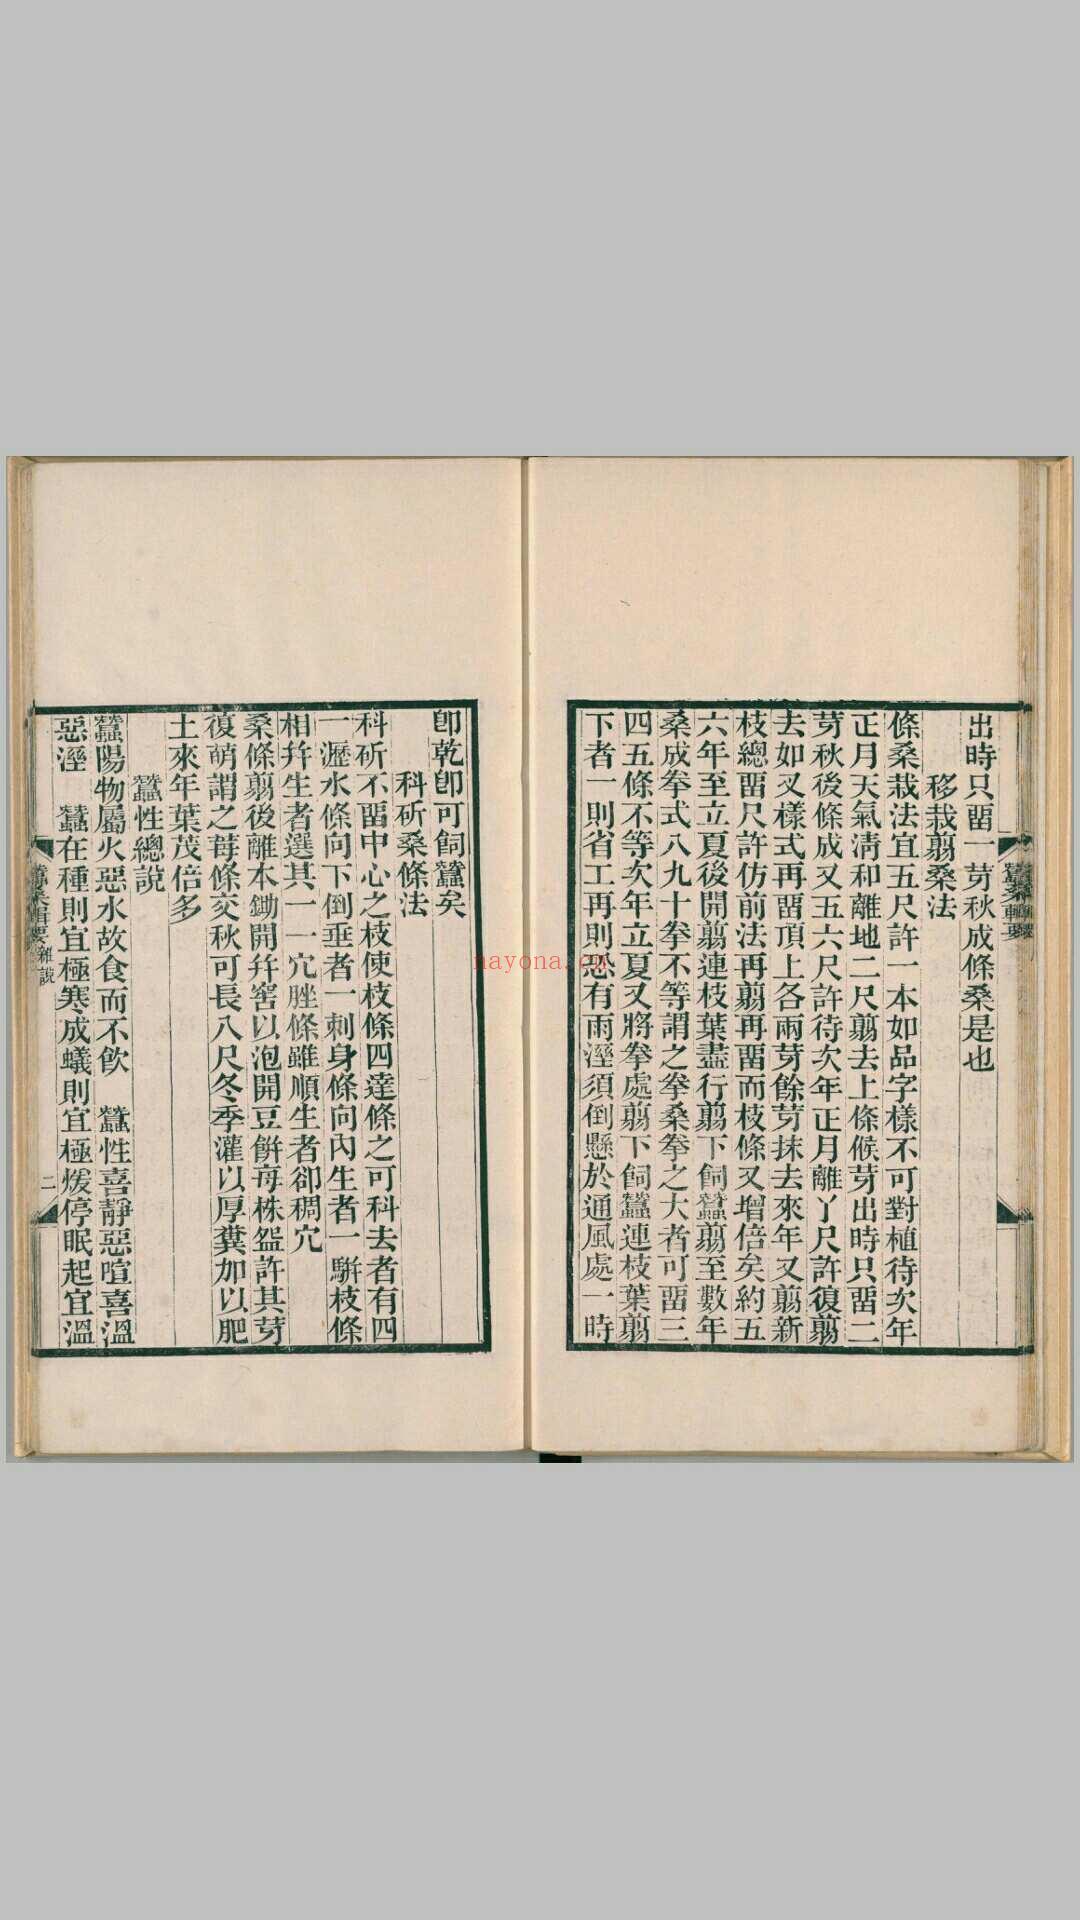 出時只畱一芽秋成條桑是也
移栽翦桑法
條桑栽法宜五尺許一本如品字樣不可對植待次年
正月天氣淸和離地二尺翦去上條候芽出時只畱二
芽秋後條成又五六尺許待次年正月離丫尺許復翦
去如叉樣式再畱頂上各兩芽餘芽抹去來年又翦新
枝總畱尺許仿前法再翦再畱而枝條又增倍矣約五
六年至立夏後開翦連枝葉盡行翦下飼蠶翦至數年
桑成拳式八九十拳不等謂之拳桑拳之大者可畱三
四五條不等次年立夏又將拳處翦下飼蠶連枝葉翦
下者一則省工再則恐有雨溼須倒懸於通風處一時
蠶桑輯要
卽乾卽可飼蠶矣
科斫桑條法
科斫不畱中心之枝使枝條四達條之可科去者有四
一瀝水條向下倒垂者一刺身條向內生者一駢枝條
相幷生者選其一一冗脞條雖順生者卻稠冗
桑條翦後離本鋤開幷窖以泡開豆餅每株盌許其芽
復萌謂之莓條交秋可長八尺冬季灌以厚糞加以肥
土來年葉茂倍多
蠶性總說
蠶陽物屬火惡水故食而不飲 蠶性喜靜惡喧喜溫
惡溼 蠶在種則宜極寒成蟻則宜極煖停眠起宜溫
蠶桑輯要 雜說 二
nayona.cn